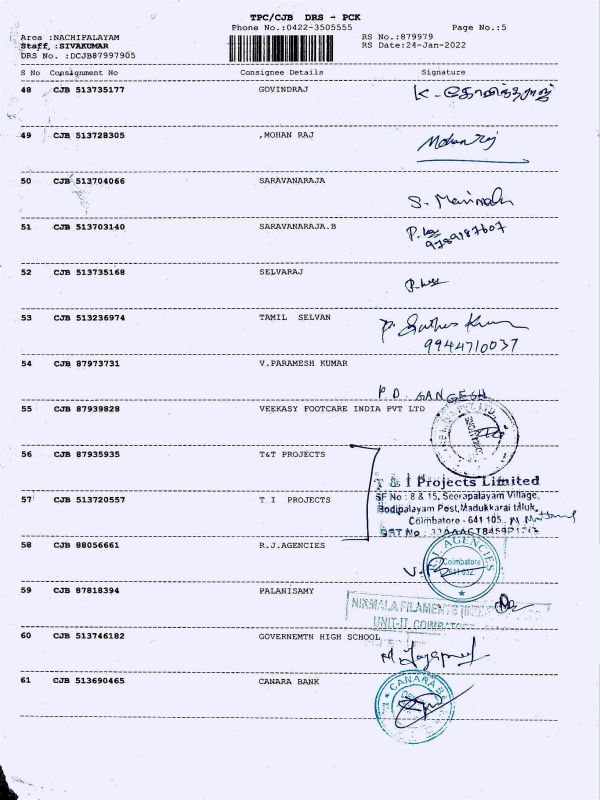 TPC/CJB DRS - PCK
Phone No.:0422-3505555 Page No.:5
Area :NACHIPALAYAM RS No.:879979
Staff.:SIVAKUMAR RS Date:24-Jan-2022
DRS No. :DCJB87997905
S No Consignment No Consignee Details Signature
48 CJB 513735177 GOVINDRAJ K - கோவிந்தராஜ்
49 CJB 513728305 ,MOHAN RAJ Mohan Raj
50 CJB 513704066 SARAVANARAJA S.
51 CJB 513703140 SARAVANARAJA.B
9789187607
52 CJB 513735168 SELVARAJ
53 CJB 513236974 TAMIL SELVAN P. Sathes Kumar
9944710037
54 CJB 87973731 V.PARAMESH KUMAR
P.D. GANGESH
55 CJB 87939828 VEEKASY FOOTCARE INDIA PVT LTD
56 CJB 87935935 T&T PROJECTS
T & I Projects Limited
57 CJB 513720557 T I PROJECTS
SF No : 8 & 15, Seerapalayam Village,
Bodipalayam Post, Madukkarai taluk,
Coimbatore - 641 105.
GST No :
58 CJB 88056661 R.J.AGENCIES
AGENCIES
Coimbatore
641 032.
59 CJB 87818394 PALANISAMY
NIRMALA FILAMENTS
UNIT-II, COIMBATORE
60 CJB 513746182 GOVERNEMTN HIGH SCHOOL
61 CJB 513690465 CANARA BANK
CANARA BANK